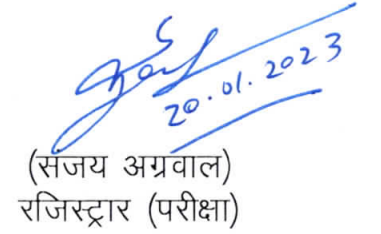 20.01.2023
(संजय अग्रवाल)
रजिस्ट्रार (परीक्षा)